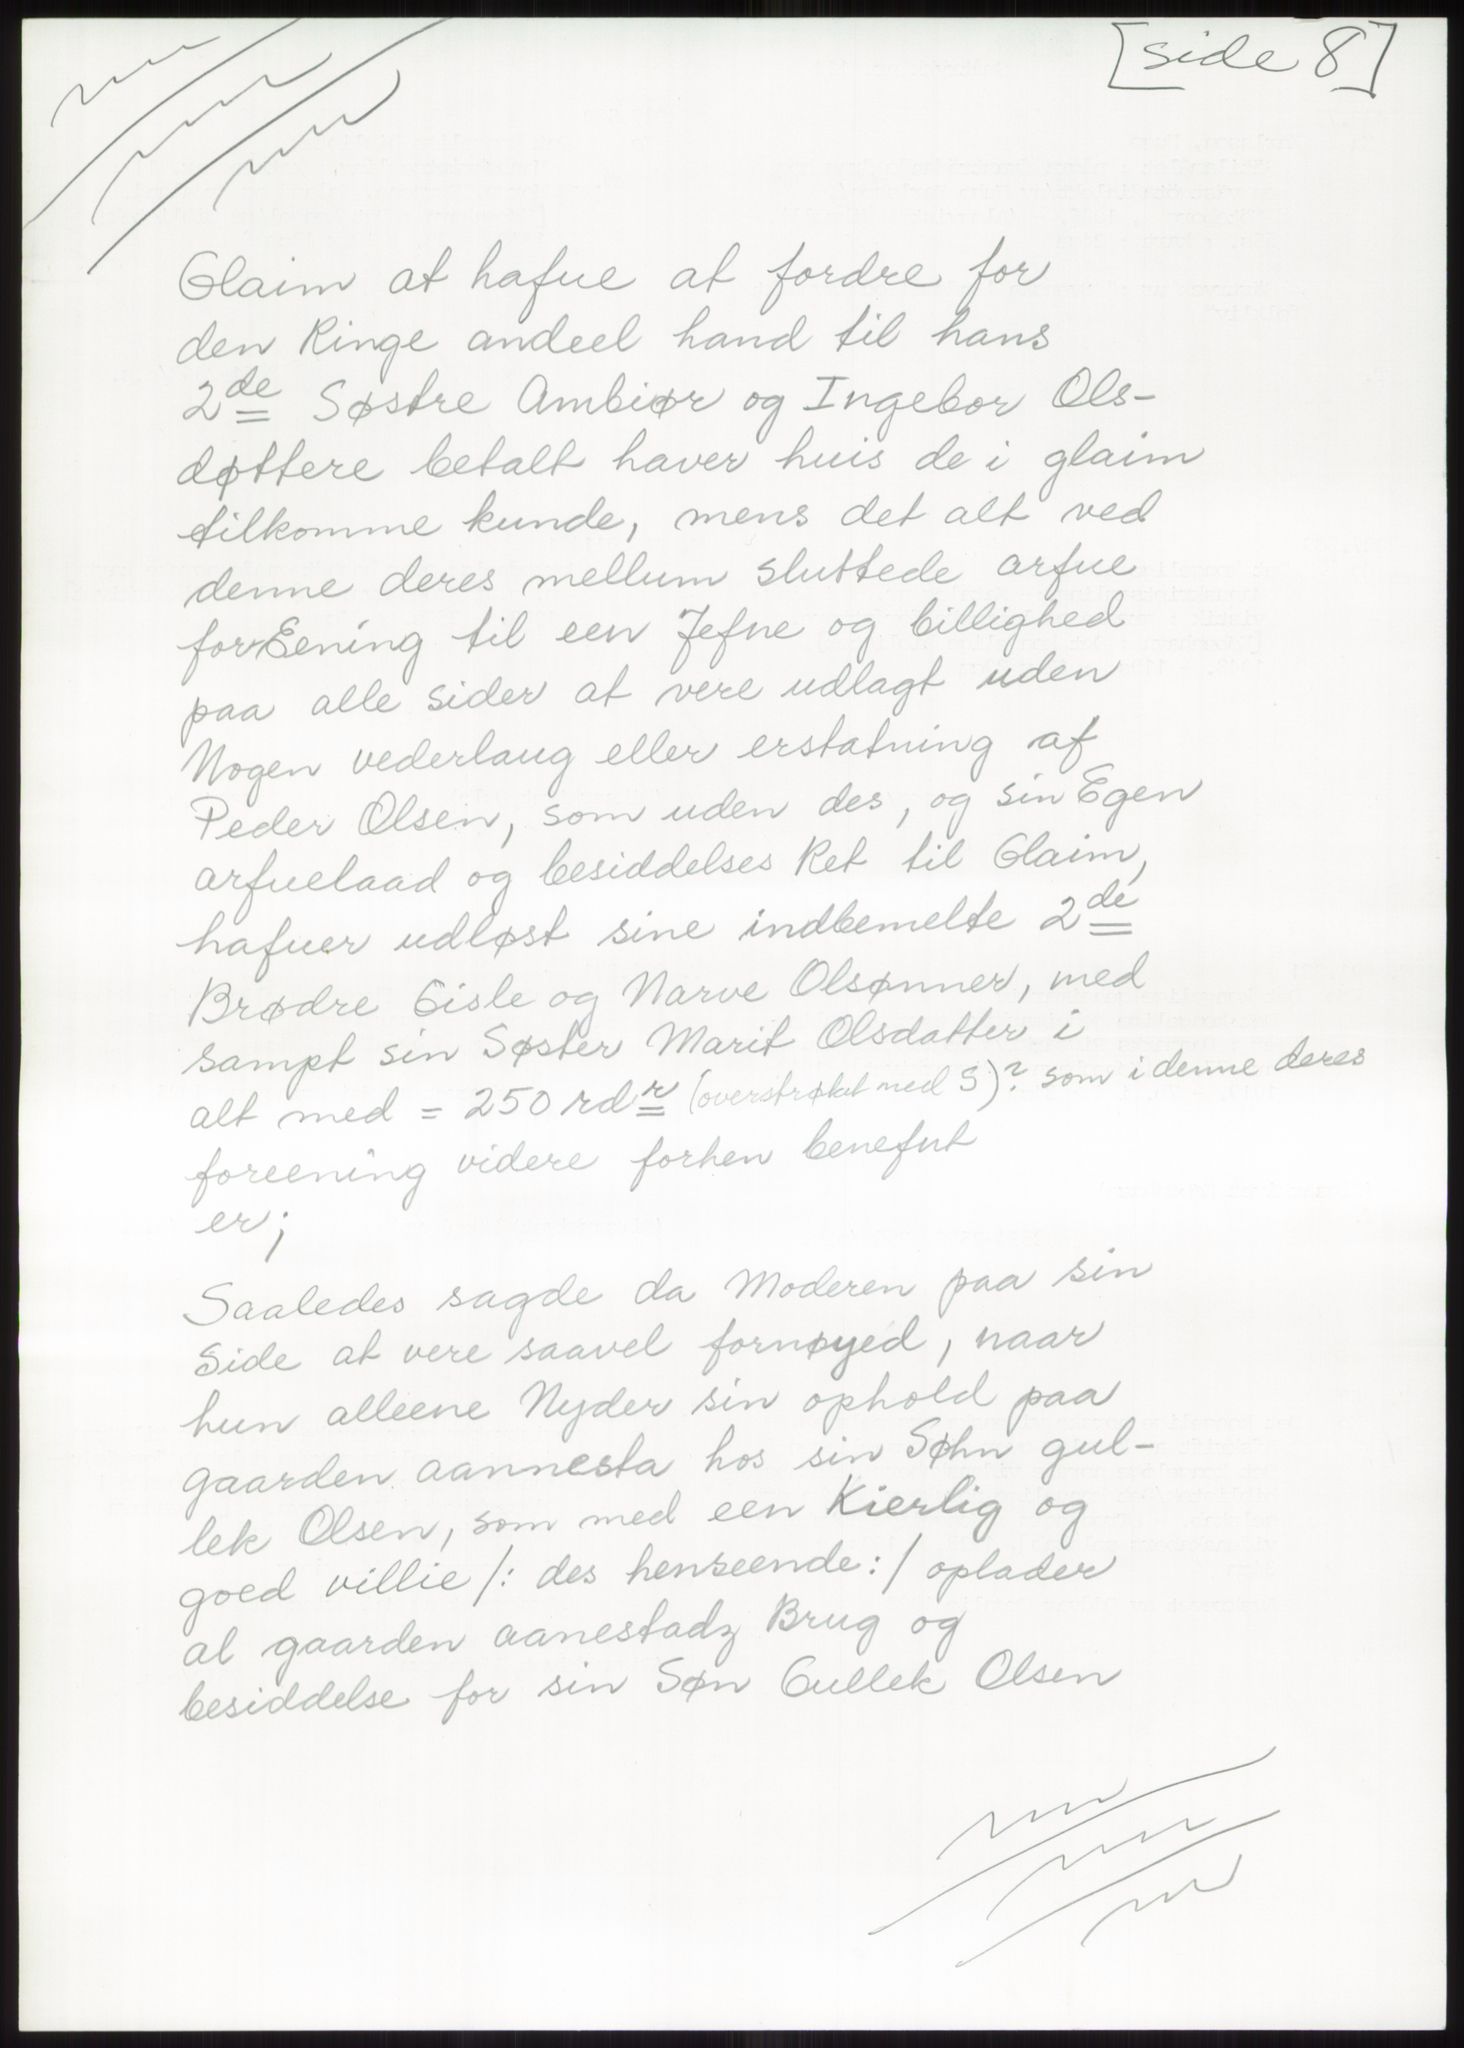 [side 8]
Glaim at hafue at fordre for
den Ringe andeel hand til hans
2de Søstre Ambiør og Ingebor Ols-
døttere betalt haver huis de i glaim
tilkomme kunde, mens det alt ved
denne deres mellum sluttede arfue
forEening til een Jefne og billighed
paa alle sider at vere udlagt uden
Nogen vederlaug eller erstatning af
Peder Olsen, som uden des, og sin Egen
arfuelaad og besiddelses Ret til Glaim,
hafuer udløst sine indbemelte 2de
Brødre Gisle og Narve Olsønner, med
sampt sin Søster Marit Olsdatter i
alt med = 250 rdr (overstrøket med S)? som i denne deres
foreening videre forhen benefnt
er;
Saaledes sagde da Moderen paa sin
Side at vere saavel fornøyed, naar
hun alleene Nyder sin ophold paa
gaarden aannesta hos sin Søhn gul-
lek Olsen, som med een Kierlig og
goed villie /: des henseende :/ oplader
al gaarden aanestadz Brug og
besiddelse for sin Søn Gullek Olsen